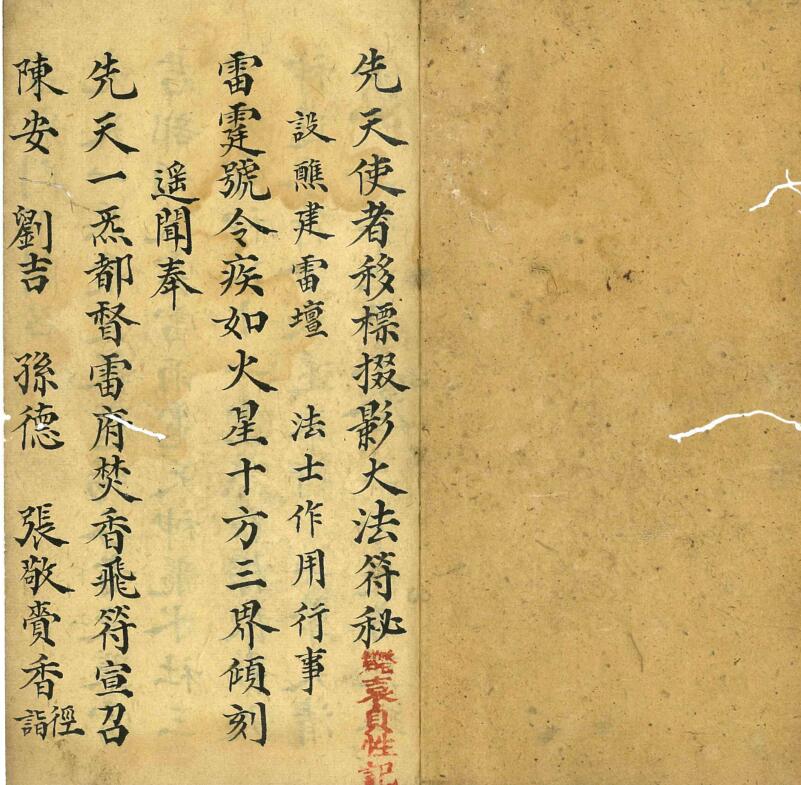 先天使者移標掇影大法符秘 袁貞性記
設醮建雷壇 法士作用行事
雷霆號令疾如火星十方三界傾刻
遥聞奉
先天一炁都督雷府焚香飛符宣召
陳安 劉吉 孫德 張敬賫香徑詣